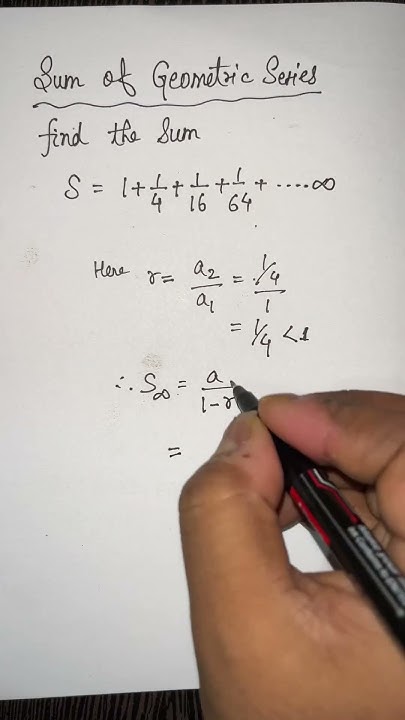 Sum of Geometric Series
find the Sum
S = 1 + 1/4 + 1/16 + 1/64 + ....∞
Here r = a₂/a₁ = (1/4)/1
= 1/4 < 1
∴ S∞ = a/(1-r)
=